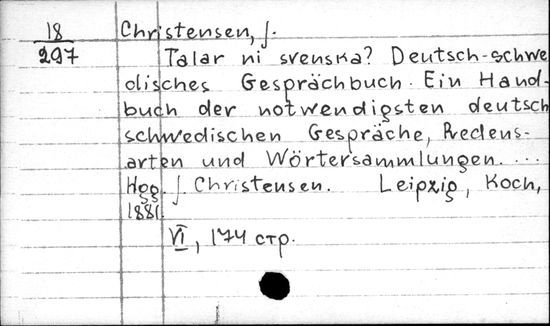 18
297
Christensen, J.
Talar ni svenska? Deutsch-schwe
disches Gesprächbuch. Ein Hand-
buch der notwendigsten deutsch
schwedischen Gespräche, Redens-
arten und Wörtersammlungen. ...
Hgg. J. Christensen. Leipzig, Koch,
1881.
VI, 174 стр.